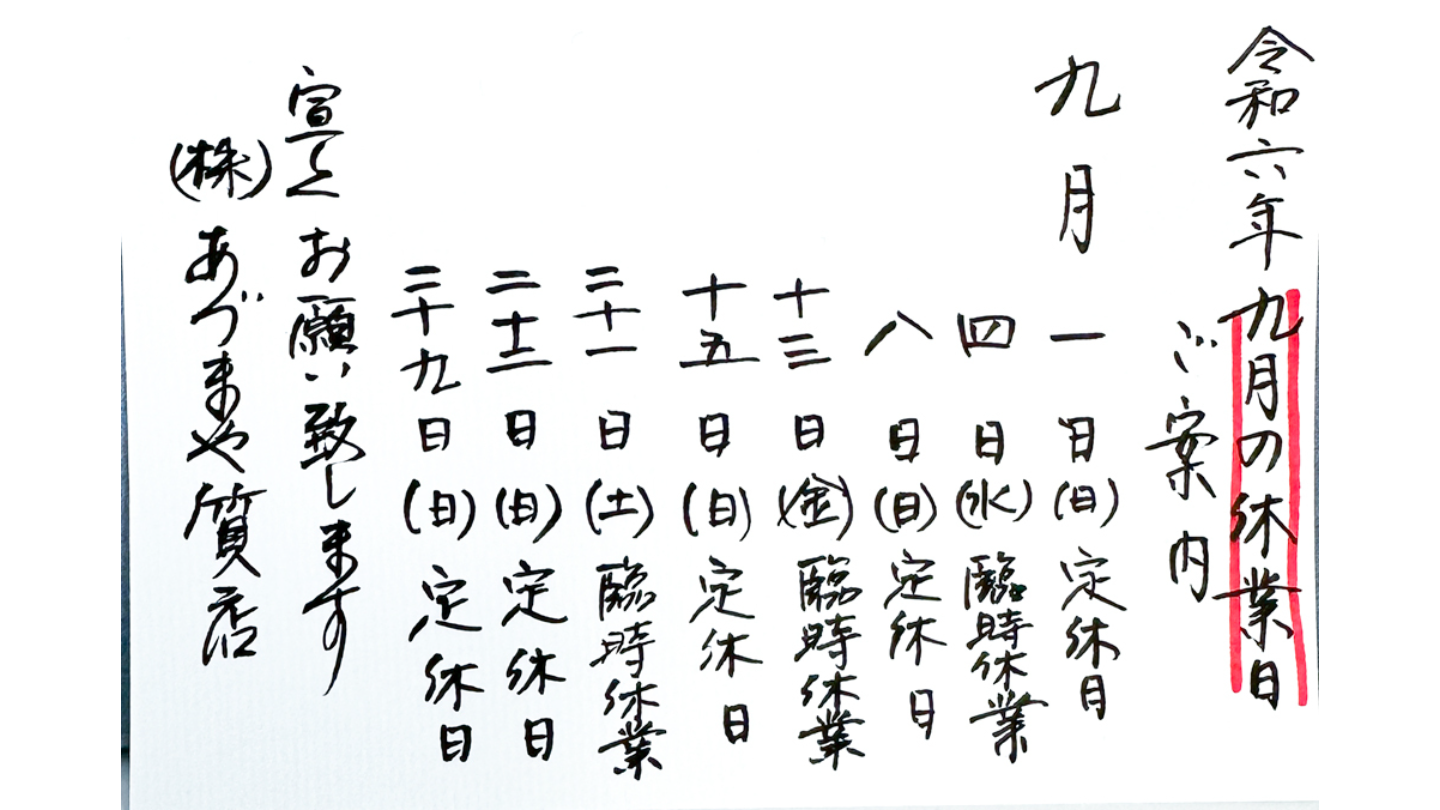 令和六年九月の休業日
ご案内
九月 一日(日)定休日
四日(水)臨時休業
八日(日)定休日
十三日(金)臨時休業
十五日(日)定休日
二十一日(土)臨時休業
二十二日(日)定休日
二十九日(日)定休日
宜しくお願い致します
(株)あづまや質店